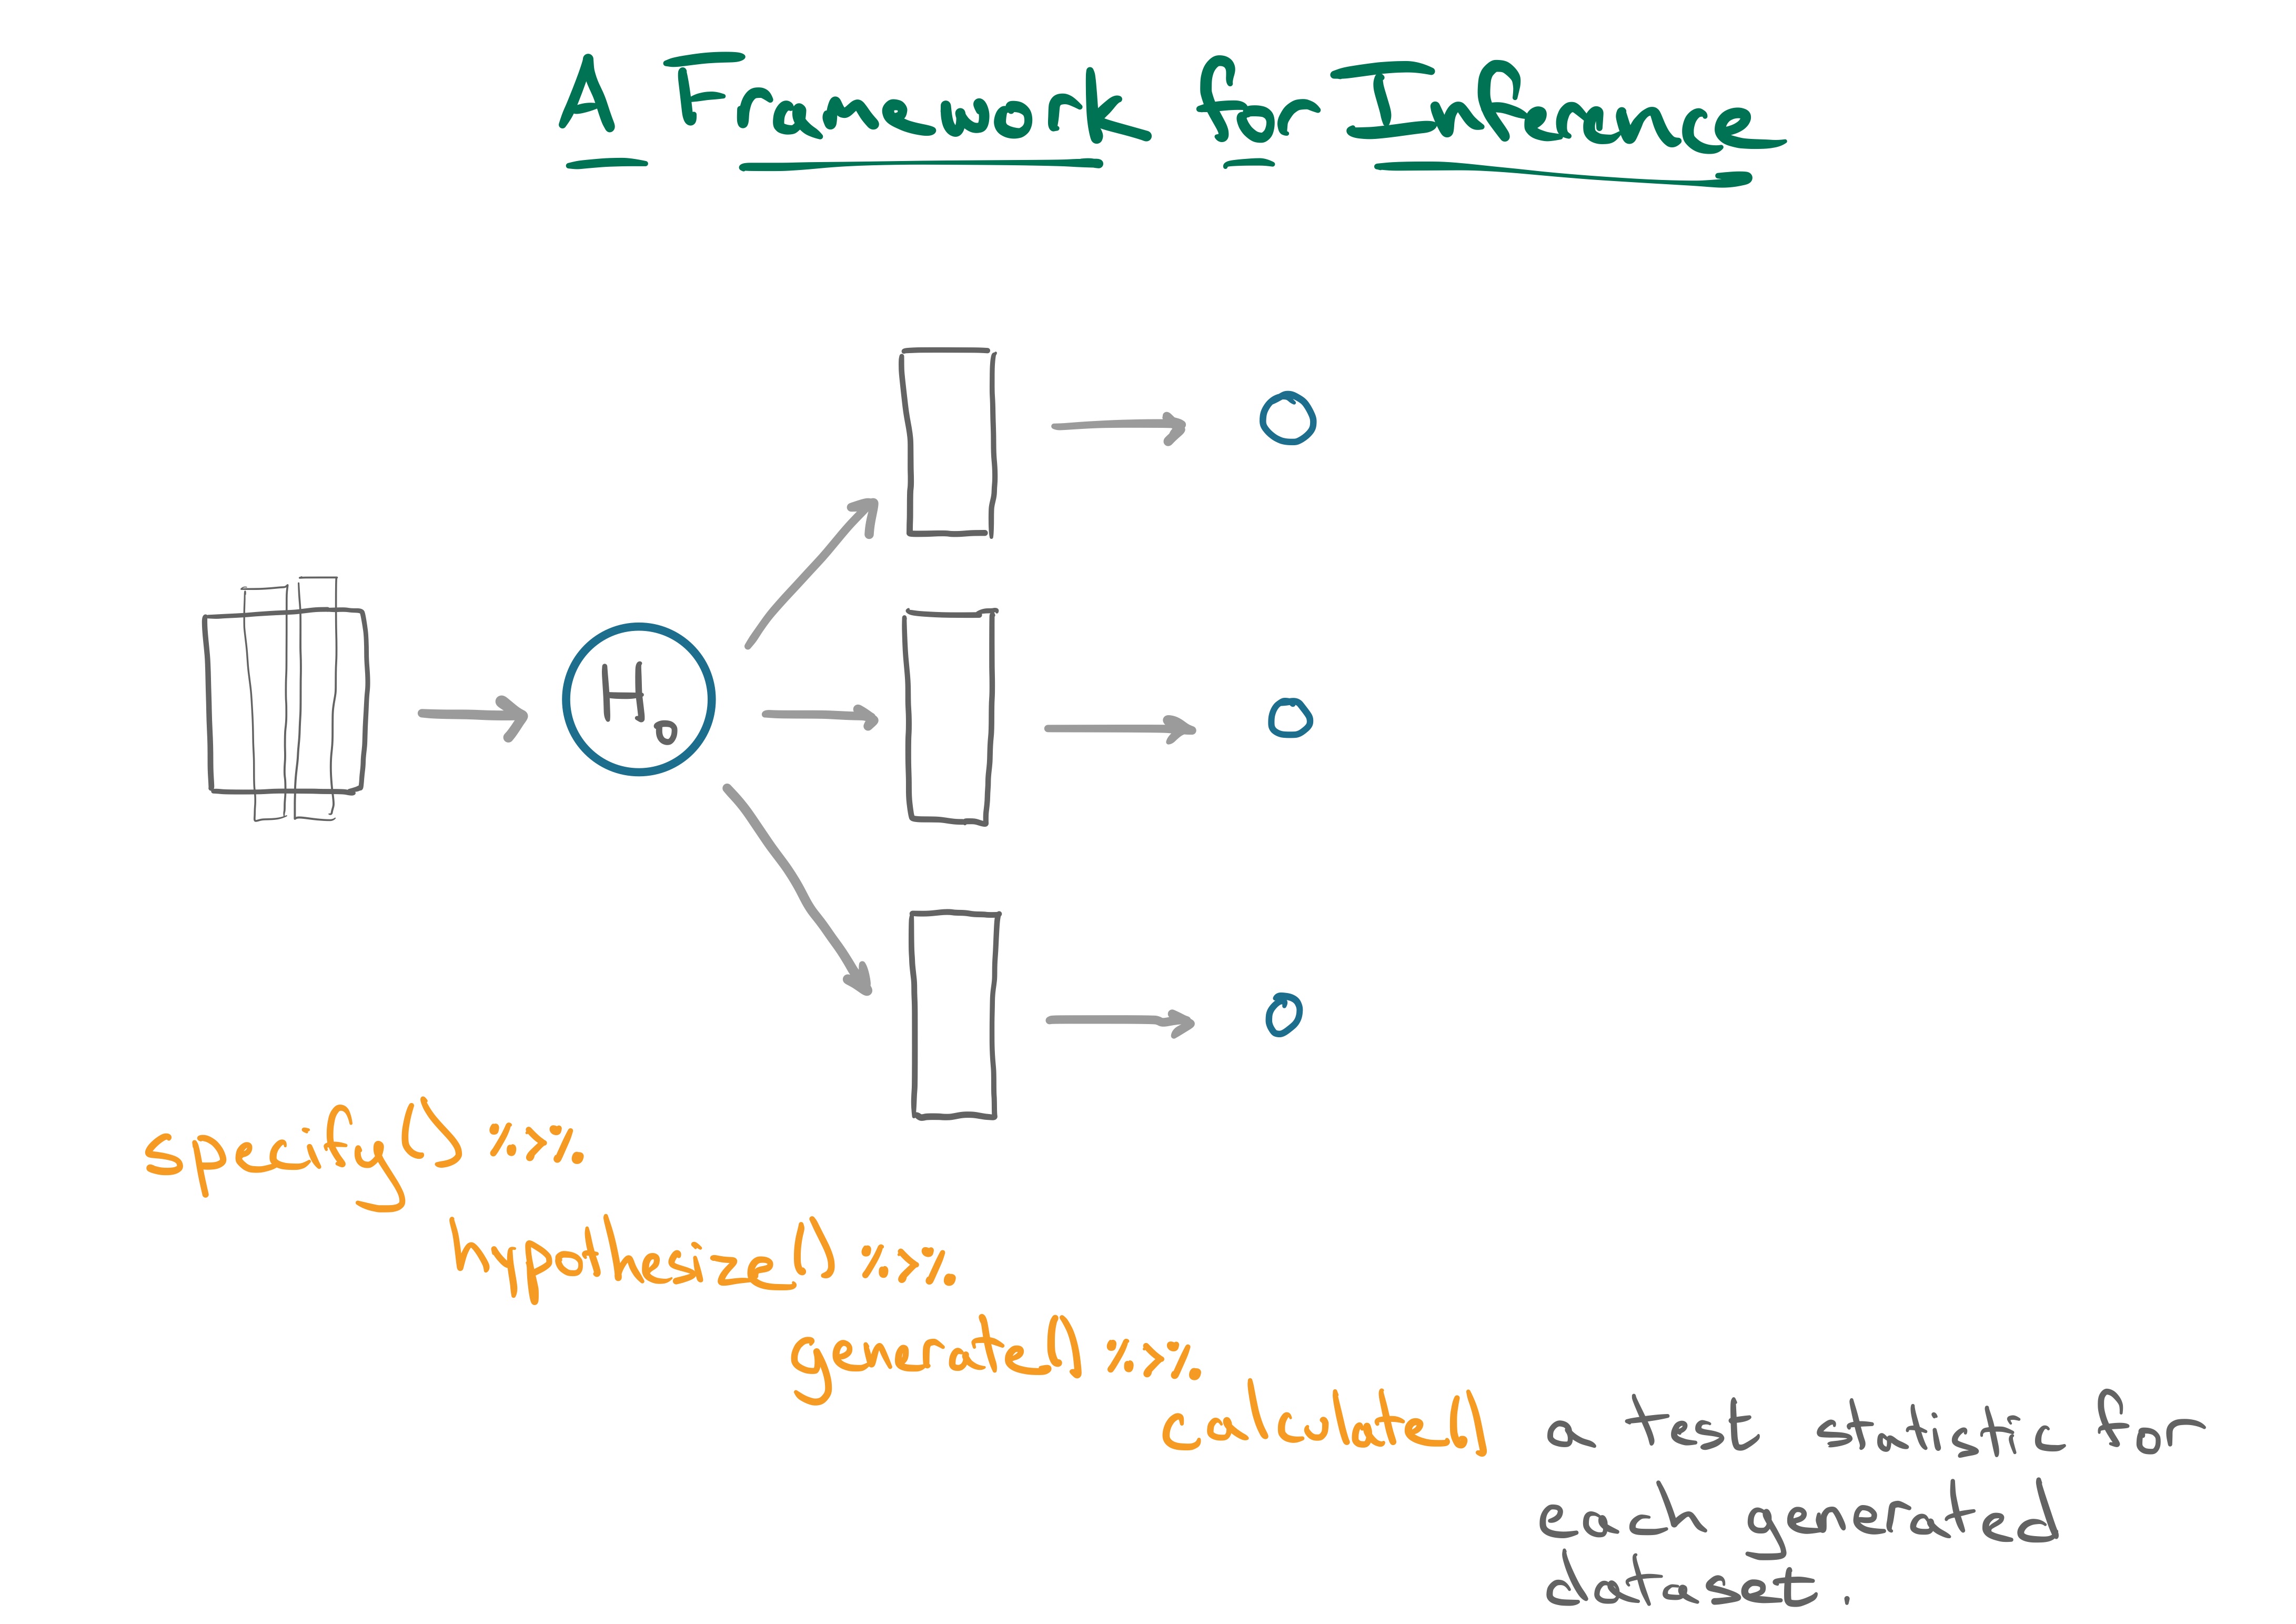 A Framework for Inference
H₀
specify() %>%
hypothesize() %>%
generate() %>%
calculate() a test statistic for
each generated
dataset.